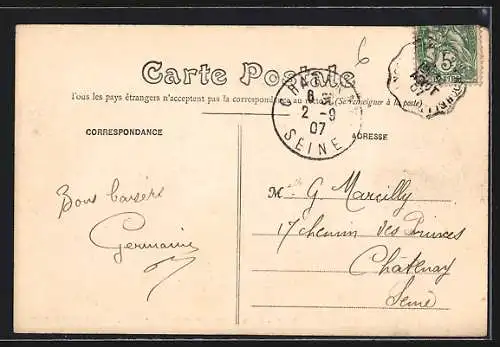 6
Carte Postale
Tous les pays étrangers n'acceptent pas la correspondance au recto (Se renseigner à la poste)
CORRESPONDANCE
ADRESSE
5
AOUT
07
6
2 - 9
07
SEINE
Bons baisers
Germaine
M. G. Marcilly
17 chemin des Princes
Châtenay
Seine